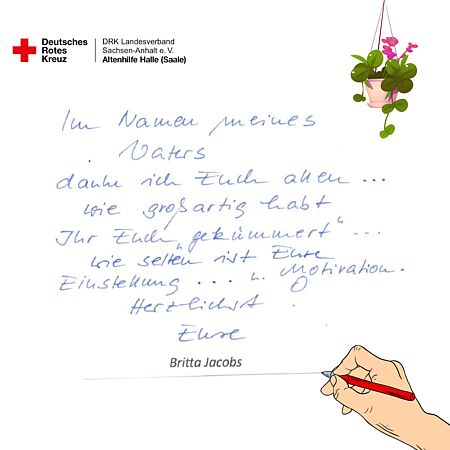 Deutsches
Rotes
Kreuz
DRK Landesverband
Sachsen-Anhalt e. V.
Altenhilfe Halle (Saale)
Im Namen meines
Vaters
danke ich Euch allen ...
wie großartig habt
Ihr Euch „gekümmert“ ...
wie selten ist Eure
Einstellung ... u. Motivation.
Herzlichst
Eure
Britta Jacobs